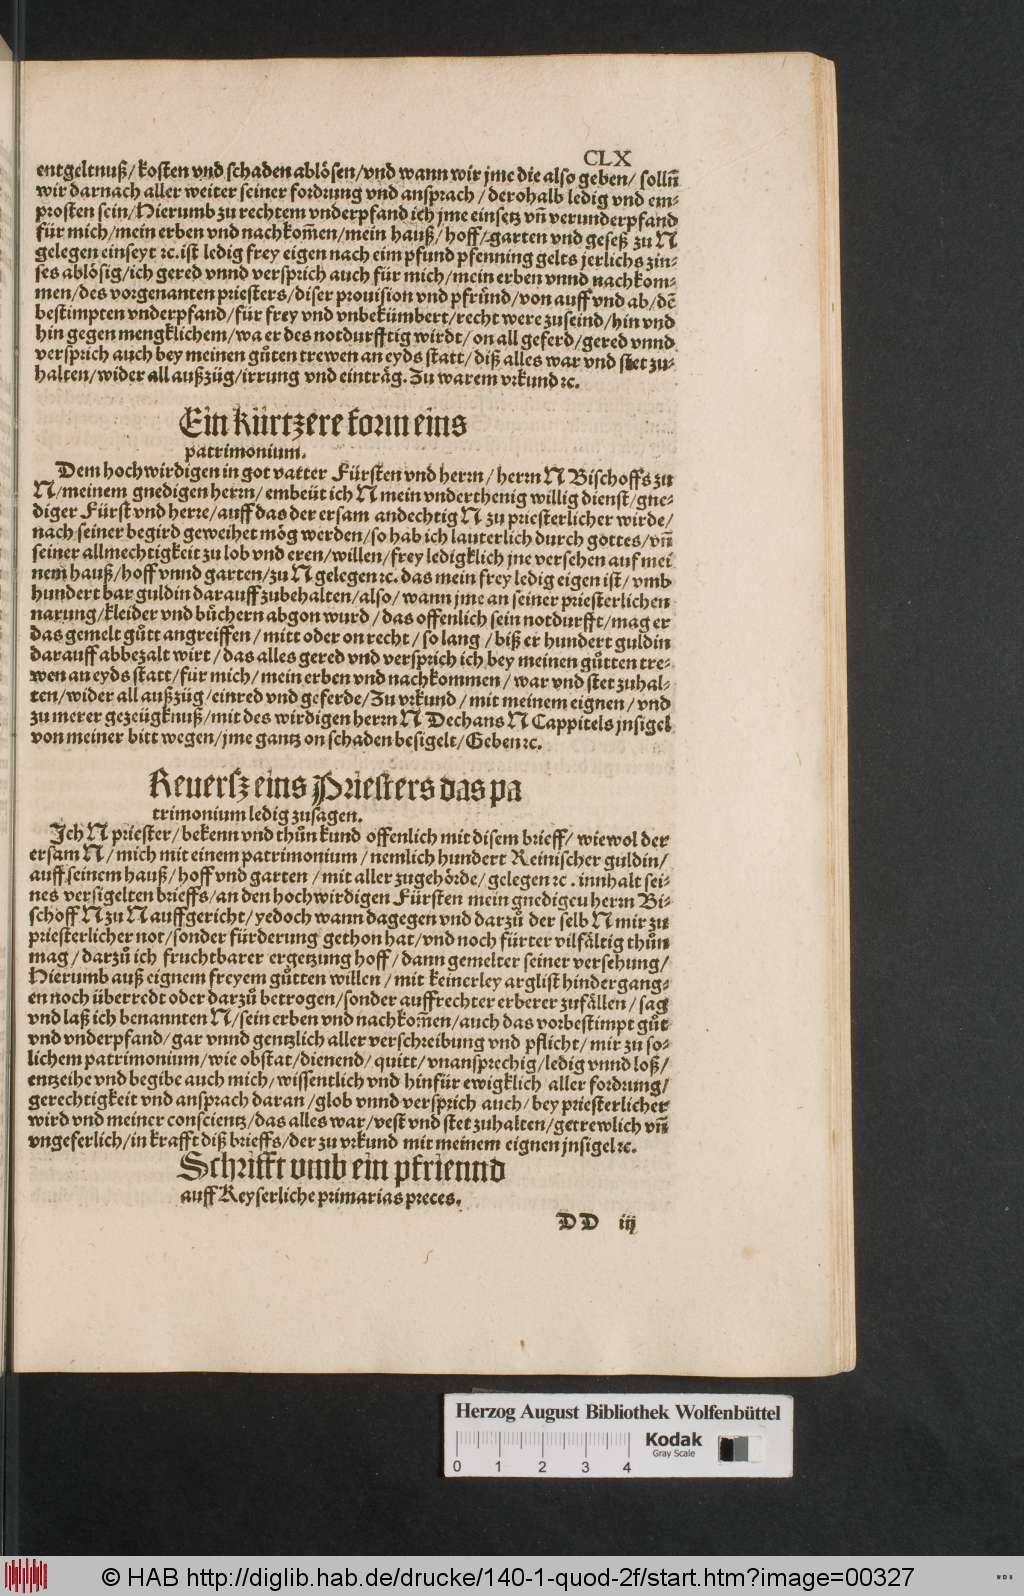 CLX
entgeltnuß/ kosten vnd schaden ablösen/vnd wann wir jme die also geben/ sollñ
wir darnach aller weiter seiner fordrung vnd ansprach / derohalb ledig vnd em-
prosten sein/Hierumb zu rechtem vnderpfand ich jme einsetz vñ verunderpfand
für mich/mein erben vnd nachkom̃en/mein hauß/ hoff/ garten vnd geseß zu N
gelegen einseyt ꝛc. ist ledig frey eigen nach eim pfund pfenning gelts jerlichs zin-
ses ablösig/ich gered vnnd versprich auch für mich/mein erben vnnd nachkom-
men/des vorgenanten priesters/diser prouision vnd pfründ/von auff vnd ab/dẽ
bestimpten vnderpfand/für frey vnd vnbekümbert/recht were zuseind/hin vnd
hin gegen mengklichem/wa er des notdurfftig wirdt/ on all geferd/gered vnnd
versprich auch bey meinen gůten trewen an eyds statt/ diß alles war vnd stet zu-
halten/wider all außzüg/irrung vnd einträg. Zu warem vrkund ꝛc.
Ein kürtzere form eins
patrimonium.
Dem hochwirdigen in got vatter Fürsten vnd herrn/ herrn N Bischoffs zu
N/meinem gnedigen herrn/ embeüt ich N mein vnderthenig willig dienst/gne-
diger Fürst vnd herre/auff das der ersam andechtig N zu priesterlicher wirde/
nach seiner begird geweihet mög werden/so hab ich lauterlich durch gottes/vñ
seiner allmechtigkeit zu lob vnd eren/willen/frey ledigklich jne versehen auf mei
nem hauß/hoff vnnd garten/zu N gelegen ꝛc. das mein frey ledig eigen ist/ vmb
hundert bar guldin darauff zubehalten/also/ wann jme an seiner priesterlichen
narung/kleider vnd bůchern abgon wurd / das offenlich sein notdurfft/mag er
das gemelt gůtt angreiffen / mitt oder on recht/ so lang / biß er hundert guldin
darauff abbezalt wirt / das alles gered vnd versprich ich bey meinen gůtten tre-
wen an eyds statt/für mich/mein erben vnd nachkommen/ war vnd stet zuhal-
ten/wider all außzüg/einred vnd geferde/Zu vrkund / mit meinem eignen / vnd
zu merer gezeügknuß/mit des wirdigen herrn N Dechans N Cappitels jnsigel
von meiner bitt wegen/jme gantz on schaden besigelt/Geben ꝛc.
Reuersz eins Priesters das pa
trimonium ledig zusagen.
Ich N priester/ bekenn vnd thůn kund offenlich mit disem brieff/ wiewol der
ersam N/ mich mit einem patrimonium / nemlich hundert Reinischer guldin/
auff seinem hauß/ hoff vnd garten /mit aller zugehörde/ gelegen ꝛc. innhalt sei-
nes versigelten brieffs/an den hochwirdigen Fürsten mein gnedigeu herrn Bi-
schoff N zu N auffgericht/ yedoch wann dagegen vnd darzů der selb N mir zu
priesterlicher not/sonder fürderung gethon hat/vnd noch fürter vilfältig thůn
mag / darzů ich fruchtbarer ergetzung hoff/ dann gemelter seiner versehung/
Hierumb auß eignem freyem gůtten willen / mit keinerley arglist hindergang-
en noch überredt oder darzů betrogen/sonder auffrechter erberer zufällen / sag
vnd laß ich benannten N/sein erben vnd nachkom̃en/auch das vorbestimpt gůt
vnd vnderpfand/ gar vnnd gentzlich aller verschreibung vnd pflicht/ mir zu so-
lichem patrimonium/wie obstat/dienend/ quitt/ vnansprechig/ledig vnnd loß/
entzeihe vnd begibe auch mich/wissentlich vnd hinfür ewigklich aller fordrung/
gerechtigkeit vnd ansprach daran /glob vnnd versprich auch/ bey priesterlicher
wird vnd meiner conscientz/das alles war/vest vnd stet zuhalten/getrewlich vñ
vngeferlich/in krafft diß brieffs/der zu vrkund mit meinem eignen jnsigel ꝛc.
Schrifft vmb ein pfriennd
auff Keyserliche primarias preces.
DD iij
Herzog August Bibliothek Wolfenbüttel
Kodak
Gray Scale
0 1 2 3 4
© HAB http://diglib.hab.de/drucke/140-1-quod-2f/start.htm?image=00327